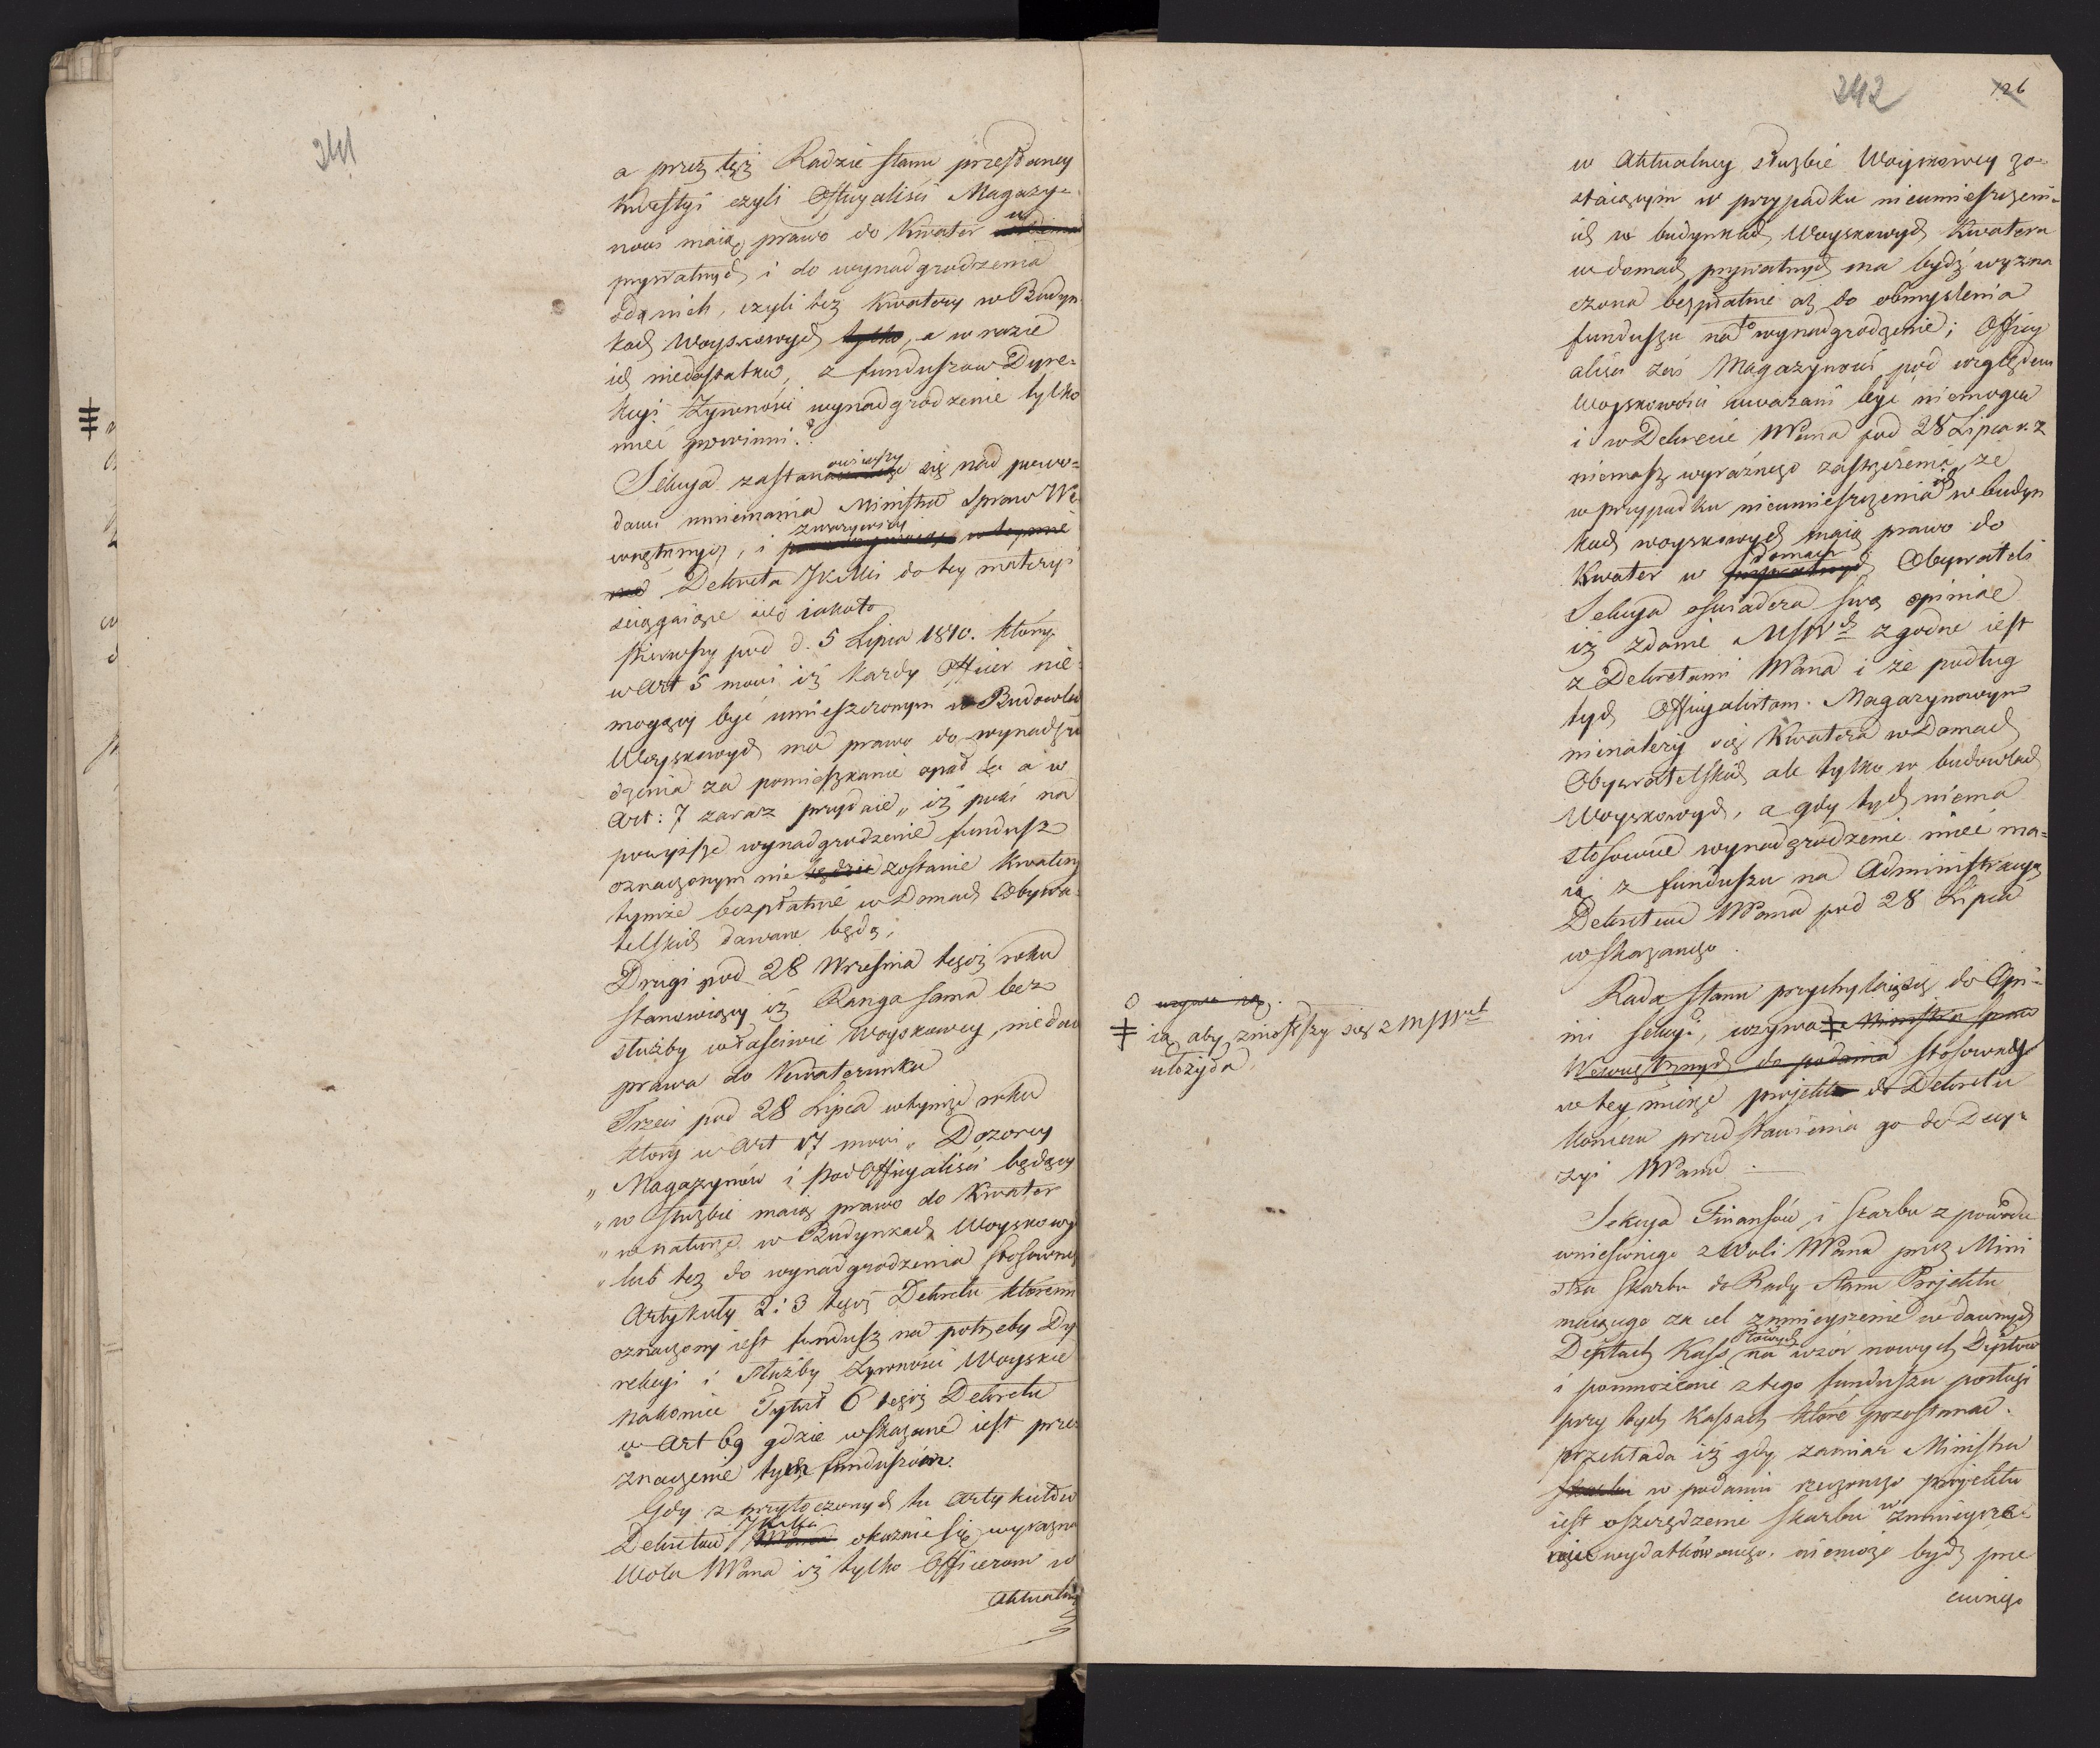 241
a przez też Radzie stanu przesłaney
kwestyi czyli Offycyaliści Magazy=
nowi maią prawo do Kwater w
prywatnych i do wynadgrodzenia
od nich, czyli też Kwatery w Budyn
kach Woyskowych tylko, a w razie
ich niedostatku, z funduszow Dyre=
kcyi Żywności wynadgrodzenie tylko
mieć powinni.?
Sekcya zastanowiwszy się nad powo=
dami mniemania Ministra Spraw We
wnętrznych, i zważywszy
Dekreta JKMci do tey materyi
ściągaiące się iakoto
Pierwszy pod d. 5 Lipca 1810. który
w Art 5 mowi iż każdy Officer nie
mogący być umieszczonym w Budowlach
Woyskowych ma prawo do wynadgro
dzenia za pomieszkanie opał &c a w
Art: 7 zaraz przydaie „ iż puki na
powyższe wynadgrodzenie fundusz
oznaczonym nie będzie zostanie Kwatery
tymże bezpłatnie w Domach Obywa=
telskich dawane będą;
Drugi pod 28 Września tegoż roku
stanowiący iż Ranga sama bez
służby właściwie Woyskowey, nie daie
prawa do Kwaterunku
Trzeci pod 28 Lipca w tymże roku
który w Art 17 mowi „ Dozorcy
„ Magazynów i pod Offycyaliści będący
„ w służbie maią prawo do Kwater
„ w naturze w Budynkach Woyskowy
„ lub też do wynadgrodzenia stosowne
Artykuły 2 i 3 tegoż Dekretu któremi
oznaczony iest fundusz na potrzeby Dy
rekcyi i Służby Żywności Woyskie
nakoniec Tytuł 6 tegoż Dekretu
w Art 69 gdzie wskazane iest prze
znaczenie tych funduszów.
Gdy z przytoczonych tu Artykułów
Dekretów JKMci okazuie się wyrazna
Wola WPana iż tylko Officerom w
Aktualney
242
126
w Aktualney służbie Woyskowey zo=
staiącym w przypadku nieumieszczeni=
ich w budynkach Woyskowych Kwatera
w domach prywatnych ma bydź wyzna
czona bezpłatnie aż do obmyslenia
funduszu na to wynadgrodzenie; Officy
aliści zaś Magazynowi pod względem
Woyskowości uważani być niemogą
i w Dekrecie WPana pod 28 Lipca r. z
niemasz wyraźnego zastrzeżenia, że
w przypadku nieumieszczenia ich w budyn
kach woyskowych maią prawo do
Kwater w domach prywatnych Obywateli
Sekcya oświadcza swą opinię
iż zdanie MSWch zgodne iest
z Dekretami WPana i że podług
tych Offycyalistom Magazynowym
nienależy się Kwatera w Domach
Obywatelskich ale tylko w budowlach
Woyskowych, a gdy tych niema
stosowne wynadgrodzenie mieć ma=
ią z funduszu na Administracyą
Dekretem WPana pod 28 Lipca
wskazanego.
Rada Stanu przychylaiąc się do Opi=
nii Sekcyi, wzywa ‡ Ministra spraw
Wewnętrznych do podania stosownego
w tey mierze projektu do Dekretu
końcem przedstawienia go do Decy=
zyi WPana.
O wzywa ią.
‡ ią aby zniosłszy się z MSWnt
ułożyła
Sekcya Finansów i Skarbu z powodu
wniesionego z Woli WPana przez Mini
stra Skarbu do Rady Stanu Projektu
maiącego za cel zmnieyszenie w dawnych
Deptach Kass na wzór nowych Deptow
i pomnożenie z tego funduszu posługi
przy tych Kassach które pozostaną.
przekłada iż gdy zamiar Ministra
Skarbu w podaniu rzeczonego projektu
iest oszczędzenie skarbu w zmnieysze=
niu wydatków onego, niemoże bydź prze
ciwnego